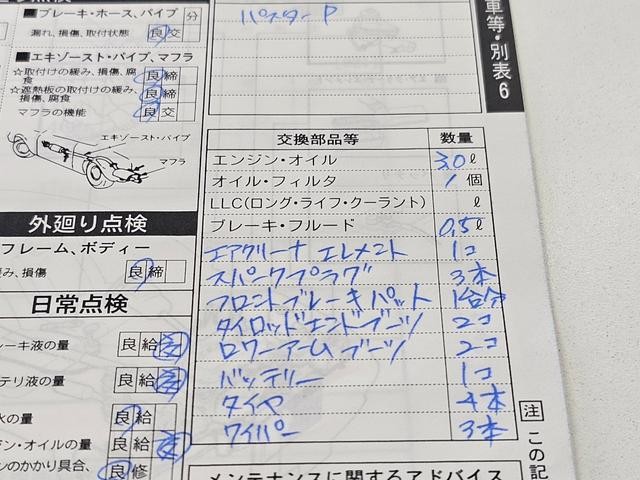 点検
■ブレーキ・ホース、パイプ 分
漏れ、損傷、取付状態 良 交
■エキゾースト・パイプ、マフラ
☆取付けの緩み、損傷、腐食 良 締
☆遮熱板の取付けの緩み、損傷、腐食 良 締
マフラの機能 良 交
エキゾースト・パイプ
マフラ
外廻り点検
フレーム、ボディー
み、損傷 良 締
日常点検
ーキ液の量 良 給
テリ液の量 良 給
水の量 良 給
ジン・オイルの量 良 給
ンのかかり具合、 良 修
パスター P
車等・別表6
交換部品等 数量
エンジン・オイル 3.0 ℓ
オイル・フィルタ 1 個
LLC(ロング・ライフ・クーラント) ℓ
ブレーキ・フルード 0.5 ℓ
エアクリーナ エレメント 1コ
スパークプラグ 3本
フロントブレーキパット 1台分
タイロッドエンドブーツ 2コ
ロワーアームブーツ 2コ
バッテリー 1コ
タイヤ 4本
ワイパー 3本
メンテナンスに関するアドバイス
注 この記